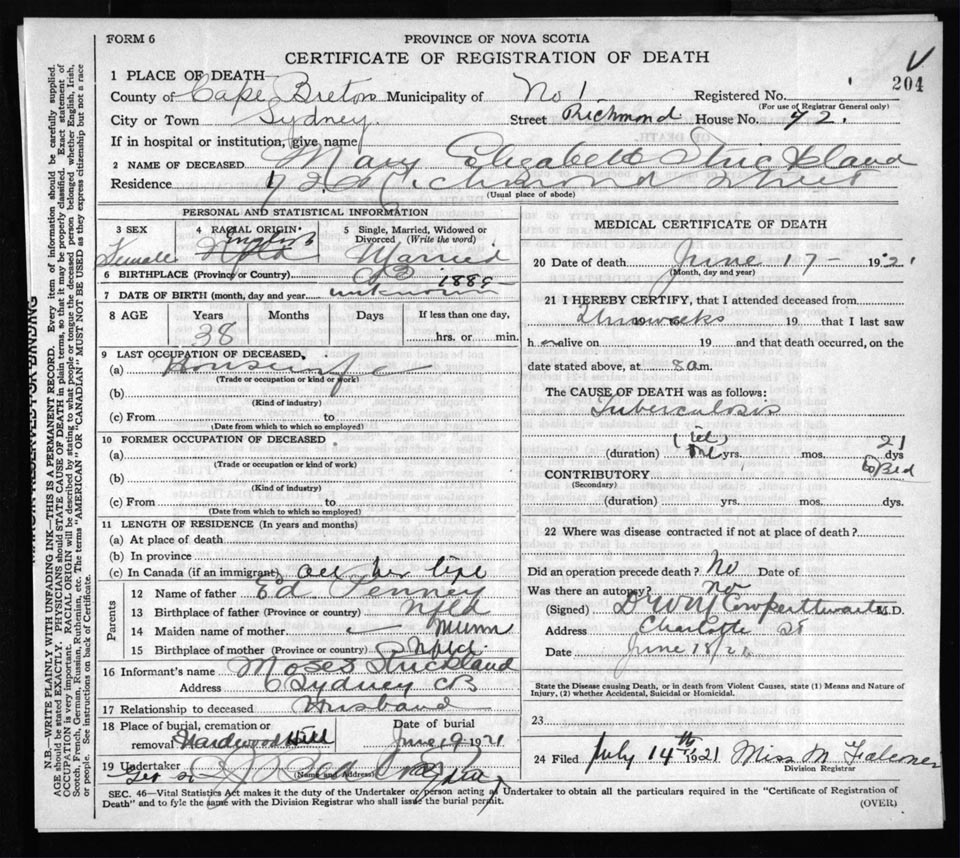 FORM 6
PROVINCE OF NOVA SCOTIA
CERTIFICATE OF REGISTRATION OF DEATH
204
1 PLACE OF DEATH
County of Cape Breton Municipality of No 1 Registered No.
(For use of Registrar General only)
City or Town Sydney. Street Richmond House No. 72.
If in hospital or institution, give name
2 NAME OF DECEASED Mary Elizabeth Strickland
Residence 72 Richmond Street
(Usual place of abode)
PERSONAL AND STATISTICAL INFORMATION
3 SEX Female
4 RACIAL ORIGIN English Nfld
5 Single, Married, Widowed or Divorced (Write the word) Married
6 BIRTHPLACE (Province or Country) CB
7 DATE OF BIRTH (month, day and year) unknown 1889
8 AGE Years Months Days If less than one day,
38 hrs. or min.
9 LAST OCCUPATION OF DECEASED,
(a) Housewife
(Trade or occupation or kind or work)
(b)
(Kind of industry)
(c) From to
(Date from which to which so employed)
10 FORMER OCCUPATION OF DECEASED
(a)
(Trade or occupation or kind of work)
(b)
(Kind of industry)
(c) From to
(Date from which to which so employed)
11 LENGTH OF RESIDENCE (In years and months)
(a) At place of death
(b) In province
(c) In Canada (if an immigrant) all her life
Parents
12 Name of father Ed Penney
13 Birthplace of father (Province or country) Nfld
14 Maiden name of mother Munn
15 Birthplace of mother (Province or country) Nfld
16 Informant's name Moses Strickland
Address Sydney CB
17 Relationship to deceased Husband
18 Place of burial, cremation or removal Hardwood Hill
Date of burial June 19 1921
19 Undertaker
(Name and Address)
MEDICAL CERTIFICATE OF DEATH
20 Date of death June 17 - 1921
(Month, day and year)
21 I HEREBY CERTIFY, that I attended deceased from
weeks 19 19 that I last saw
h er alive on 19 and that death occurred, on the
date stated above, at 8 a m.
The CAUSE OF DEATH was as follows:
Tuberculosis
(duration) yrs. mos. 21 dys
CONTRIBUTORY Bed
(Secondary)
(duration) yrs. mos. dys.
22 Where was disease contracted if not at place of death?
Did an operation precede death? No Date of
Was there an autopsy? no
(Signed) Cowperthwaite M.D.
Address Charlotte St
Date June 18/21
State the Disease causing Death, or in death from Violent Causes, state (1) Means and Nature of
Injury, (2) whether Accidental, Suicidal or Homicidal.
23
24 Filed July 14th 1921 Miss M Falconer
Division Registrar
SEC. 46—Vital Statistics Act makes it the duty of the Undertaker or person acting as Undertaker to obtain all the particulars required in the "Certificate of Registration of
Death" and to fyle the same with the Division Registrar who shall issue the burial permit.
(OVER)
MARGIN RESERVED FOR BINDING
N.B.—WRITE PLAINLY WITH UNFADING INK—THIS IS A PERMANENT RECORD. Every item of information should be carefully supplied.
AGE should be stated EXACTLY. PHYSICIANS should STATE CAUSE OF DEATH in plain terms, so that it may be properly classified. Exact statement of
OCCUPATION is very important. RACIAL ORIGIN will be described by stating to what people or tongue the deceased person belonged whether English, Irish,
Scotch, French, German, Russian, Ruthenian, etc. The terms "AMERICAN" OR "CANADIAN" MUST NOT BE USED as they express citizenship but not a race
or people. See instructions on back of Certificate.